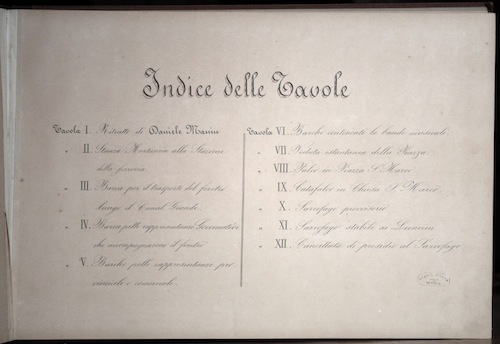 Indice delle Tavole
Tavola I. Ritratto di Daniele Manin
" II. Stanza Mortuaria alla Stazione
della ferrovia
" III. Barca pel trasporto del feretro
lungo il Canal Grande
" IV. Barca delle rappresentanze Governative
che accompagnarono il feretro
" V. Barche delle rappresentanze pro
vinciali e comunali.
Tavola VI. Barche contenenti le bande musicali
" VII. Veduta istantanea della Piazza
" VIII. Palco in Piazza S. Marco
" IX. Catafalco in Chiesa S. Marco
" X. Sarcofago provvisorio
" XI. Sarcofago stabile ai Leoncini
" XII. Cancellata di presidio al Sarcofago